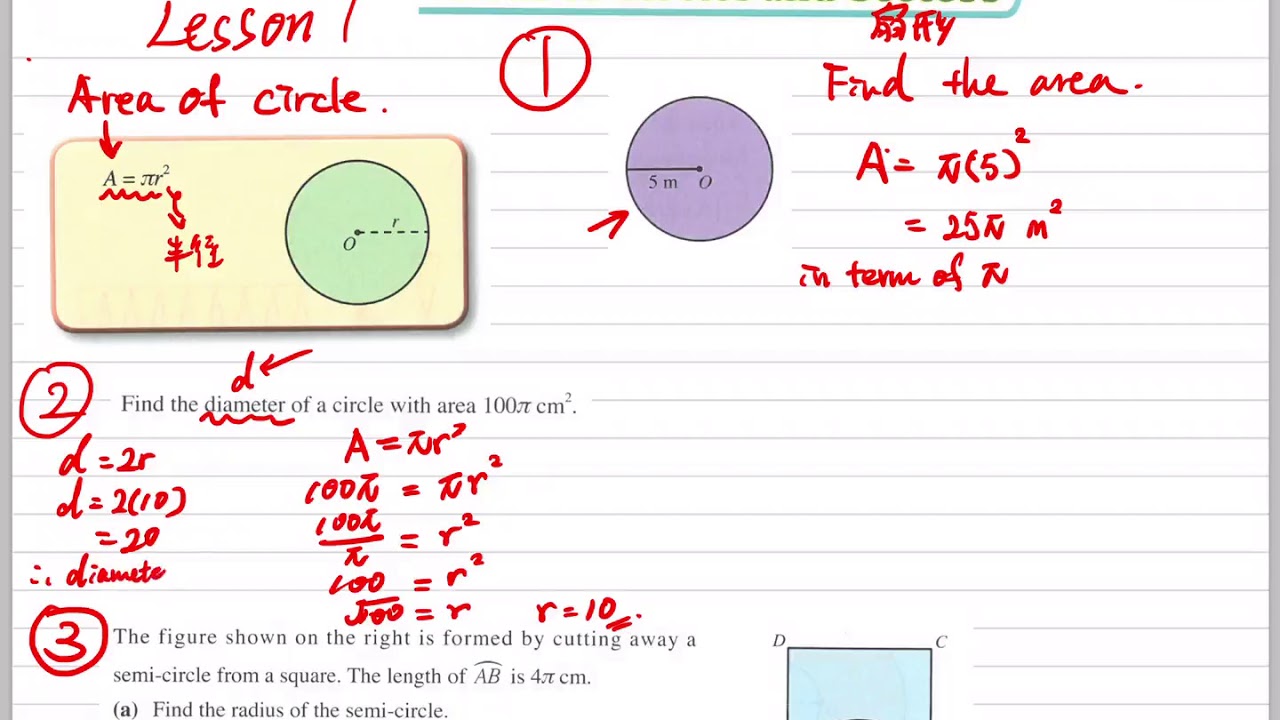 Lesson 1
Area of circle.
A = πr²
半径
r
O
①
5 m O
扇形
Find the area.
A = π(5)²
= 25π m²
in term of π
②
d
Find the diameter of a circle with area 100π cm².
d = 2r
d = 2(10)
= 20
∴ diamete
A = πr²
100π = πr²
100π/π = r²
100 = r²
√100 = r r = 10.
③
The figure shown on the right is formed by cutting away a
semi-circle from a square. The length of A͡B is 4π cm.
(a) Find the radius of the semi-circle.
D C